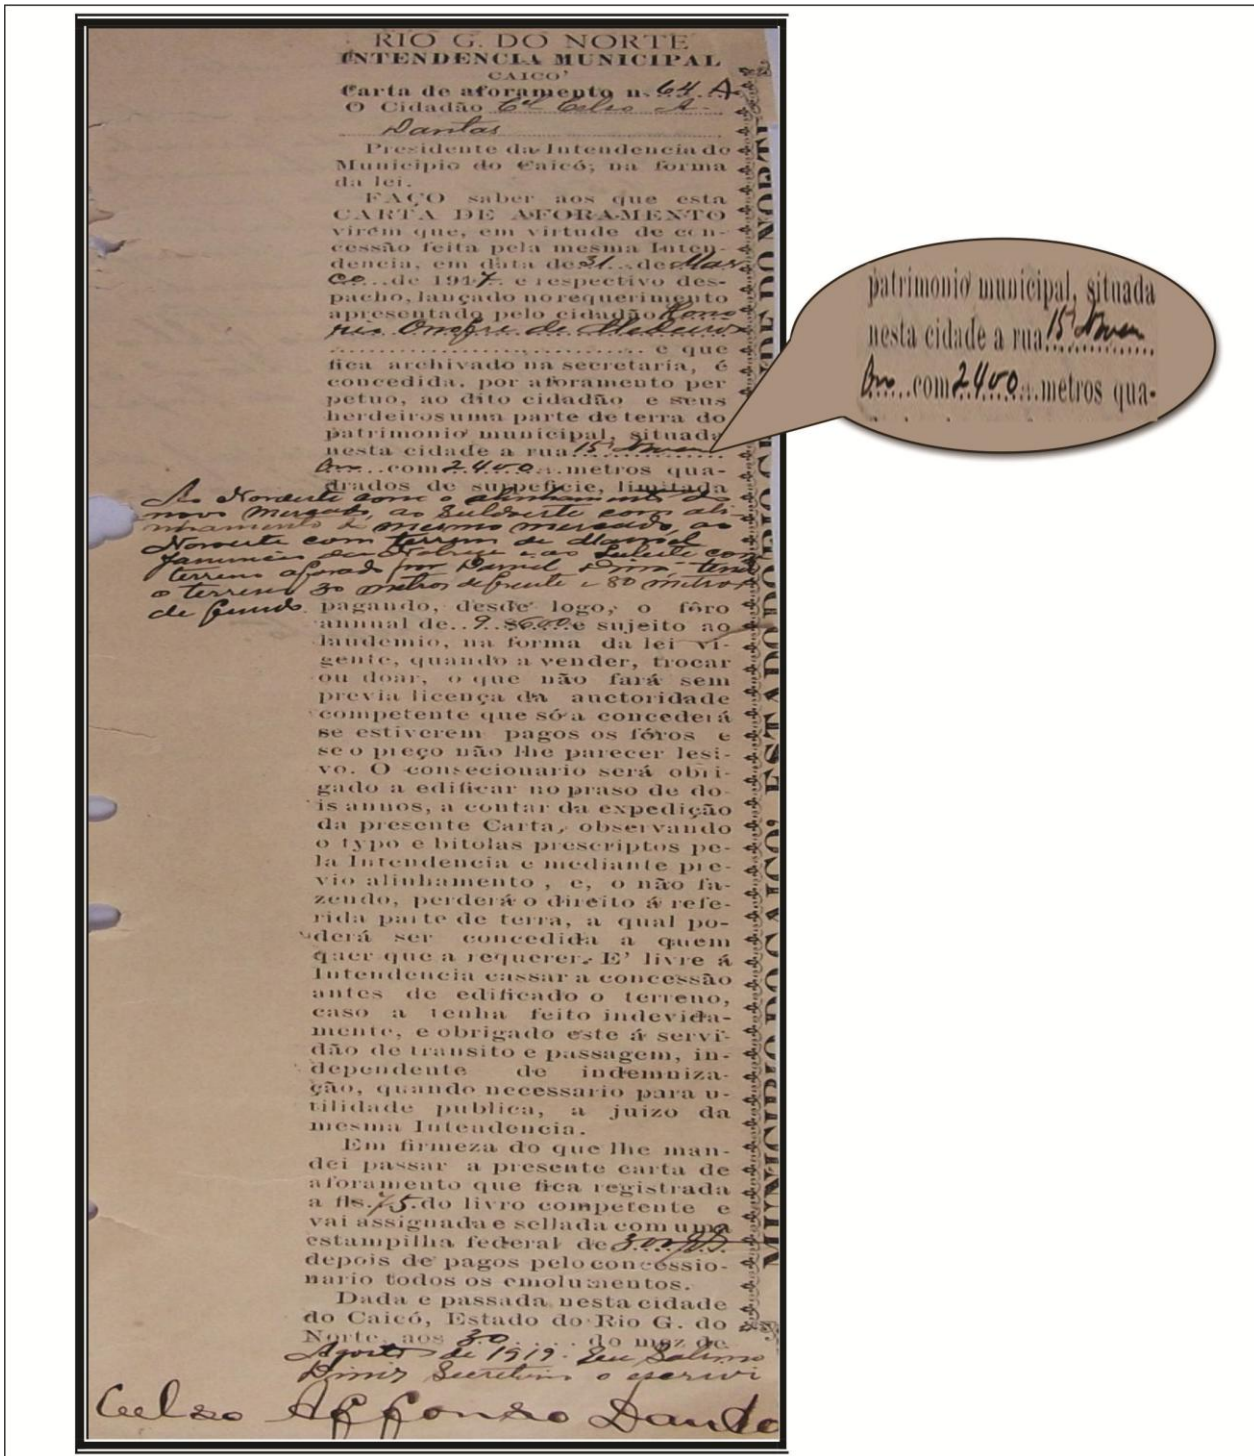 RIO G. DO NORTE
INTENDENCIA MUNICIPAL
CAICO'
Carta de aforamento n. 64 A
O Cidadão Cel Celso A.
Dantas
Presidente da Intendencia do
Municipio do Caicó, na forma
da lei.
FAÇO saber aos que esta
CARTA DE AFORAMENTO
virem que, em virtude de con-
cessão feita pela mesma Inten-
dencia, em data de 31 de Mar
ço de 1917 e respectivo des-
pacho, lançado no requerimento
apresentado pelo cidadão Hono
rio Onofre de Medeiros
e que
fica archivado na secretaria, é
concedida. por aforamento per
petuo, ao dito cidadão e seus
herdeiros uma parte de terra do
patrimonio municipal, situada
nesta cidade a rua 15 Novem
bro com 2400 metros qua-
drados de supeficie, limitada
Ao Nordeste com o alinhamento do
novo mercado, ao Suldoeste com ali-
nhamento do mesmo mercado, ao
Noroeste com terreno de Manoel
e ao Suleste com
terreno aforado por Daniel Diniz, tendo
o terreno 30 metros de frente e 80 metros
de fundo
pagando, desde logo, o fôro
annual de 9.$600 e sujeito ao
laudemio, na forma da lei vi-
gente, quando a vender, trocar
ou doar, o que não fará sem
previa licença da auctoridade
competente que só a concederá
se estiverem pagos os fóros e
se o preço não lhe parecer lesi-
vo. O consecionario será obri-
gado a edificar no praso de do-
is annos, a contar da expedição
da presente Carta, observando
o typo e bitolas prescriptos pe-
la Intendencia e mediante pre-
vio alinhamento, e, o não fa-
zendo, perderá o direito á refe-
rida parte de terra, a qual po-
derá ser concedida a quem
quer que a requerer. E' livre á
Intendencia cassar a concessão
antes de edificado o terreno,
caso a tenha feito indevida-
mente, e obrigado este á servi-
dão de transito e passagem, in-
dependente de indemniza-
ção, quando necessario para u-
tilidade publica, a juizo da
mesma Intendencia.
Em firmeza do que lhe man-
dei passar a presente carta de
aforamento que fica registrada
a fls. 75 do livro competente e
vai assignada e sellada com uma
estampilha federal de 300
depois de pagos pelo concessio-
nario todos os emolumentos.
Dada e passada nesta cidade
do Caicó, Estado do Rio G. do
Norte, aos 30 do mez de
Agosto de 1919. Eu Salvino
Diniz Secretario o escrevi
Celso Affonso Dantas
MUNICIPIO DO CAICO', ESTADO DO RIO GRANDE DO NORTE
patrimonio municipal, situada
nesta cidade a rua 15 Novem
bro com 2400 metros qua-